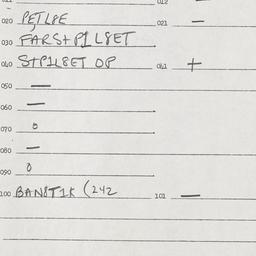 020 PETL8E 021 —
030 FARST PIL8ET
040 STPIL8ET OP 041 +
050 —
060 —
070 0
080 —
090 0
100 BAN8T1K (242 101 —